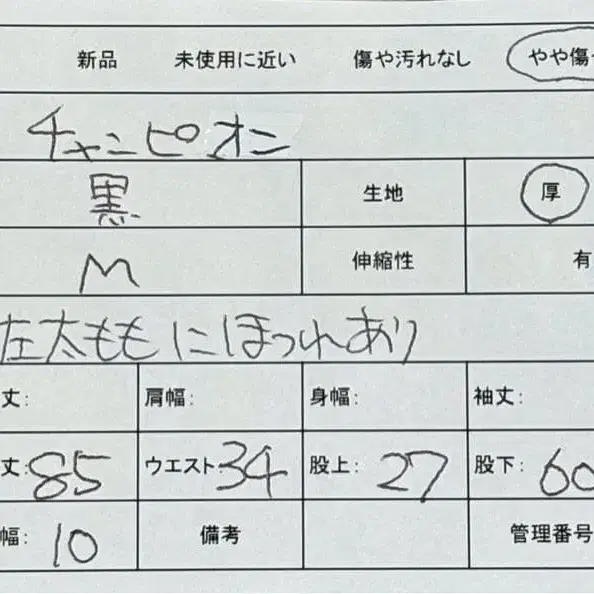 新品 未使用に近い 傷や汚れなし やや傷
チャンピオン
黒 生地 厚
M 伸縮性 有
左太ももにほつれあり
丈: 肩幅: 身幅: 袖丈:
丈:85 ウエスト34 股上: 27 股下: 60
幅: 10 備考 管理番号